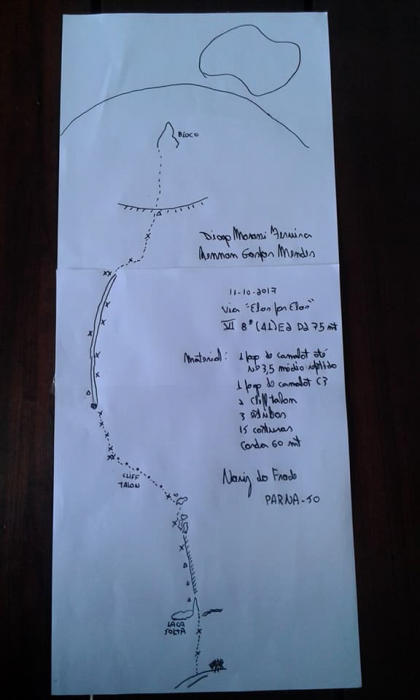 BLOCO
Diogo Morani Ferreira
Rennan Gaspar Mendes
11-10-2017
Via "Elos por Elos"
VI 8º (A1) E2 D2 75 mt
Material: 1 jogo de camalot até
nº 3,5 médio repetido
1 jogo de camalot C3
2 cliff talon
3 estribos
15 costuras
Corda 60 mt
CLIFF
TALON
Nariz do Frade
PARNA-SO
LACA
SOLTA